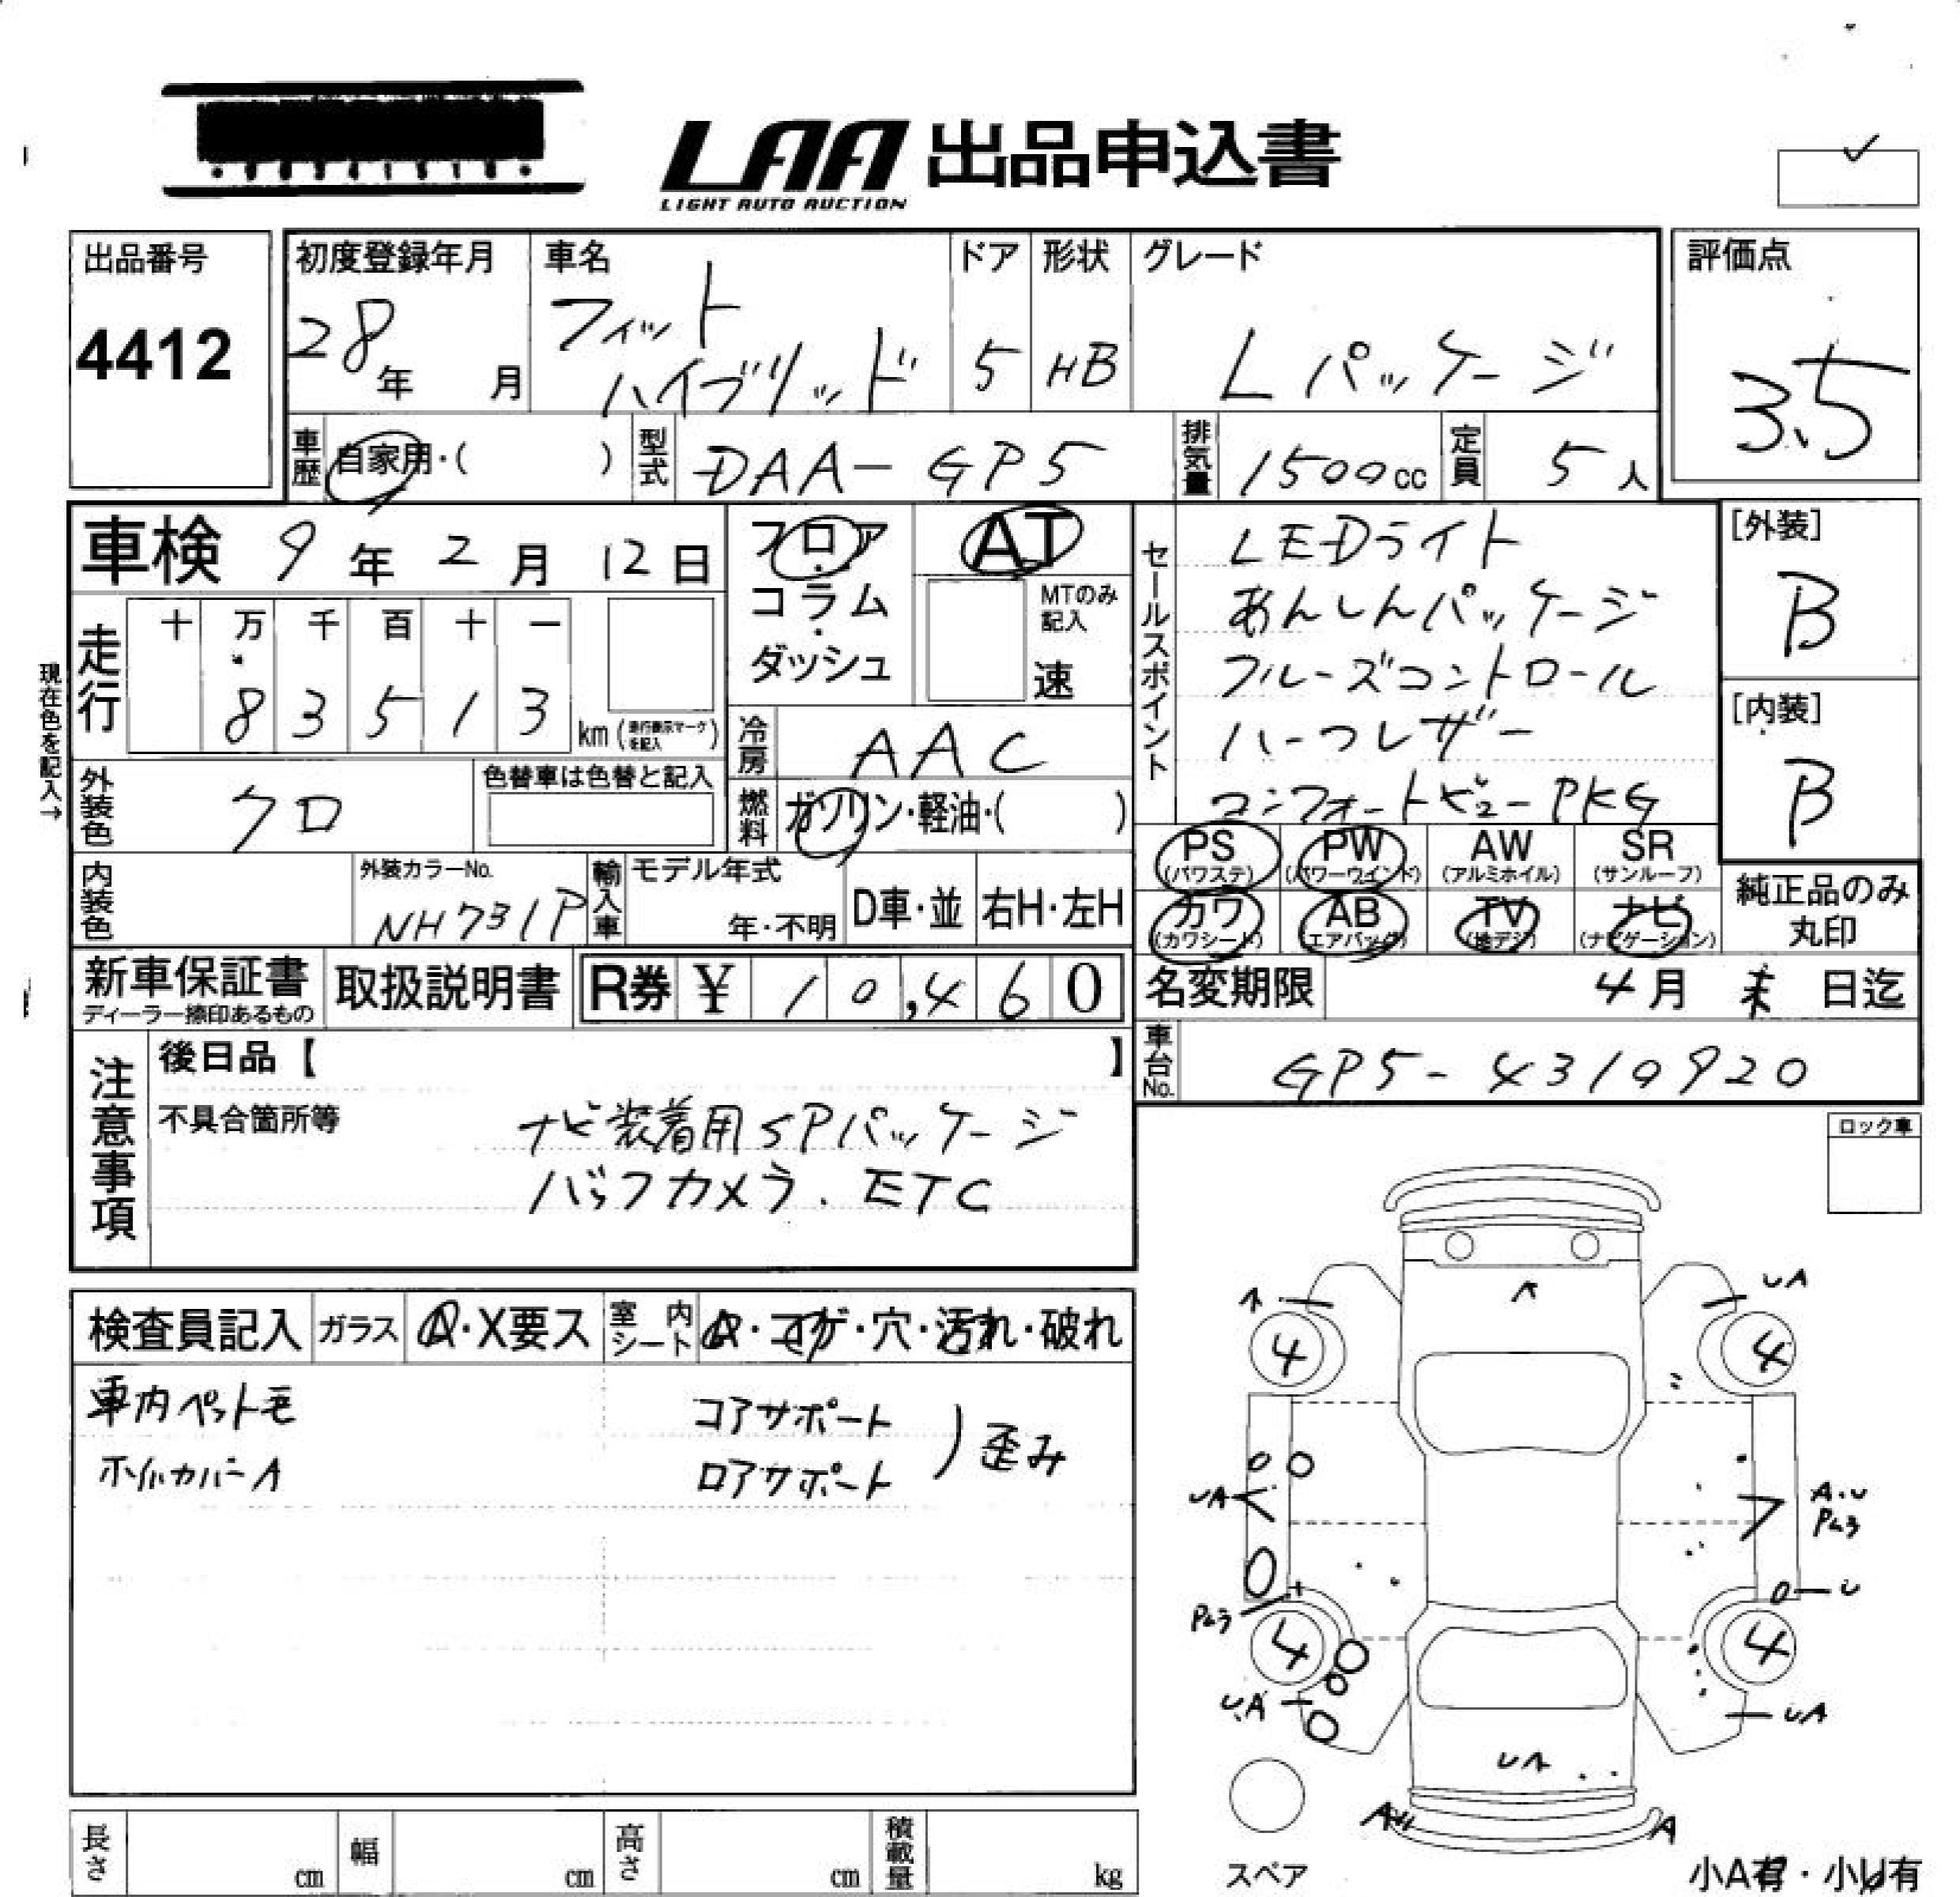 LAA 出品申込書
LIGHT AUTO AUCTION
出品番号
4412
初度登録年月
28年 月
車名
フィット
ハイブリッド
ドア
5
形状
HB
グレード
Lパッケージ
評価点
3.5
車歴 自家用・( )
型式 DAA-GP5
排気量 1500cc
定員 5人
車検 9年2月12日
フロア・コラム・ダッシュ
AT
MTのみ記入
速
セールスポイント
LEDライト
あんしんパッケージ
クルーズコントロール
ハーフレザー
コンフォートビューPKG
[外装]
B
[内装]
B
現在色を記入→
走行
十 万 千 百 十 一
8 3 5 1 3
km (走行表示マークを記入)
冷房 AAC
外装色 クロ
色替車は色替と記入
燃料 ガソリン・軽油・( )
PS (パワステ)
PW (パワーウインド)
AW (アルミホイル)
SR (サンルーフ)
カワ (カワシート)
AB (エアバック)
TV (地デジ)
ナビ (ナビゲーション)
純正品のみ丸印
内装色
外装カラーNo.
NH731P
輸入車
モデル年式
年・不明
D車・並
右H・左H
新車保証書
ディーラー捺印あるもの
取扱説明書
R券 ¥ 10,460
名変期限 4月 末 日迄
車台No. GP5-4310920
注意事項
後日品【 】
不具合箇所等
ナビ装着用SPパッケージ
バックカメラ. ETC
ロック車
検査員記入
ガラス A・X要ス
室内シート A・コゲ・穴・汚れ・破れ
車内ペット毛
ホイルカバーA
コアサポート
ロアサポート
歪み
A
A
UA
4
4
UA
A・U
Pムラ
U
Pムラ
4
4
UA
UA
UA
A
スペア
小A有・小U有
長さ cm
幅 cm
高さ cm
積載量 kg